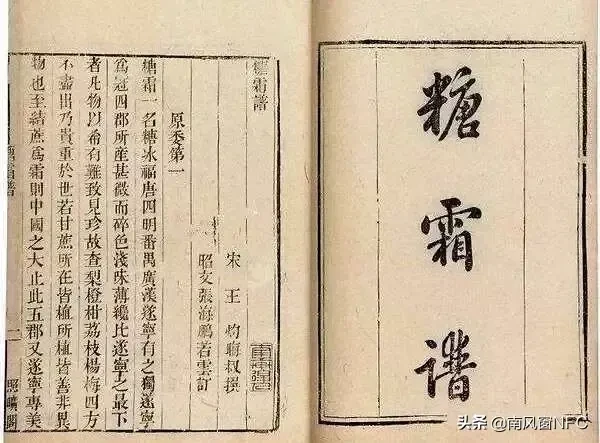 糖霜譜
糖霜譜
宋王灼晦叔撰
昭文張海鵬若雲訂
原委第一
糖霜一名糖氷福唐四明番禺廣漢遂寧有之獨遂寧
爲冠四郡所産甚微而碎色淺味薄纔比遂寧之最下
者凡物以希有難致見珍故查梨橙柑荔枝楊梅四方
不盡出乃貴重於世若甘蔗所在皆植所植皆善非異
物也至結蔗爲霜則中國之大止此五郡又遂寧專美
糖霜譜
一
照曠閣
头条 @南风窗NFC